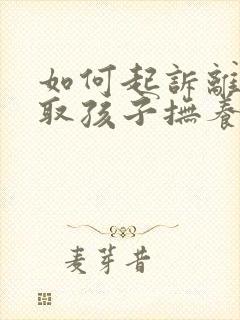 如何起訴離
取孩子撫養
麦芽昔